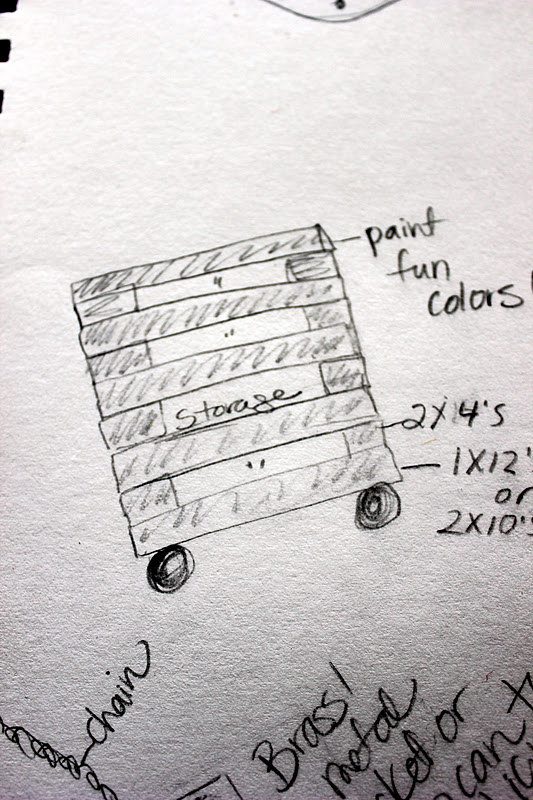 paint
fun
colors!
"
"
Storage
2X4's
"
1X12's
or
2X10's
chain
Brass!
metal
or
can